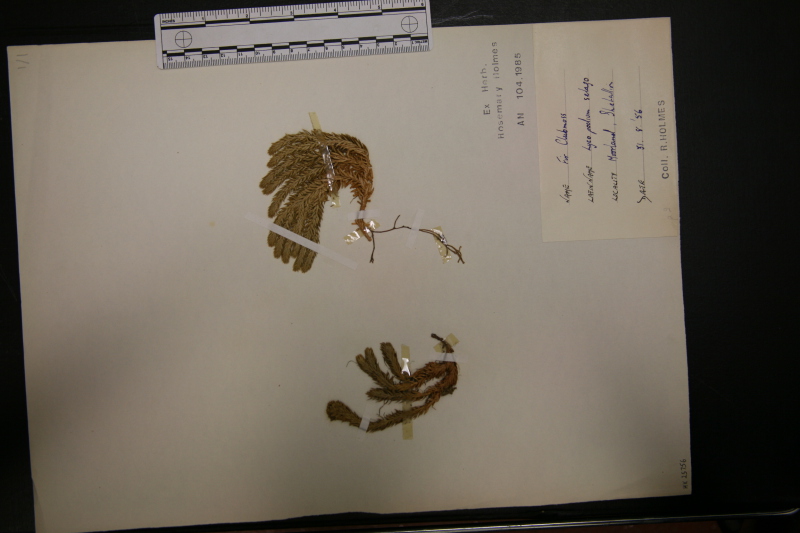 Ex Herb.
Rosemary Holmes
AN 104.1985
NAME Fir Clubmoss
LATIN NAME Lycopodium selago
LOCALITY
DATE 31.8.'56
Coll. R. HOLMES